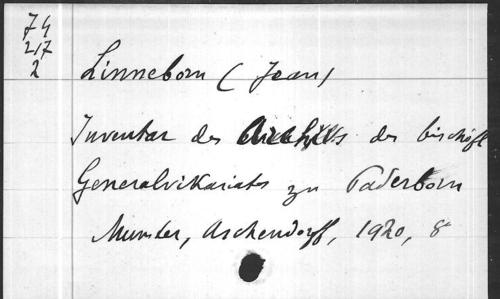 74
217
2
Linneborn (Jean)
Inventar des Archivs des bischöfl
Generalvikariats zu Paderborn
Munster, Aschendorff, 1920, 8